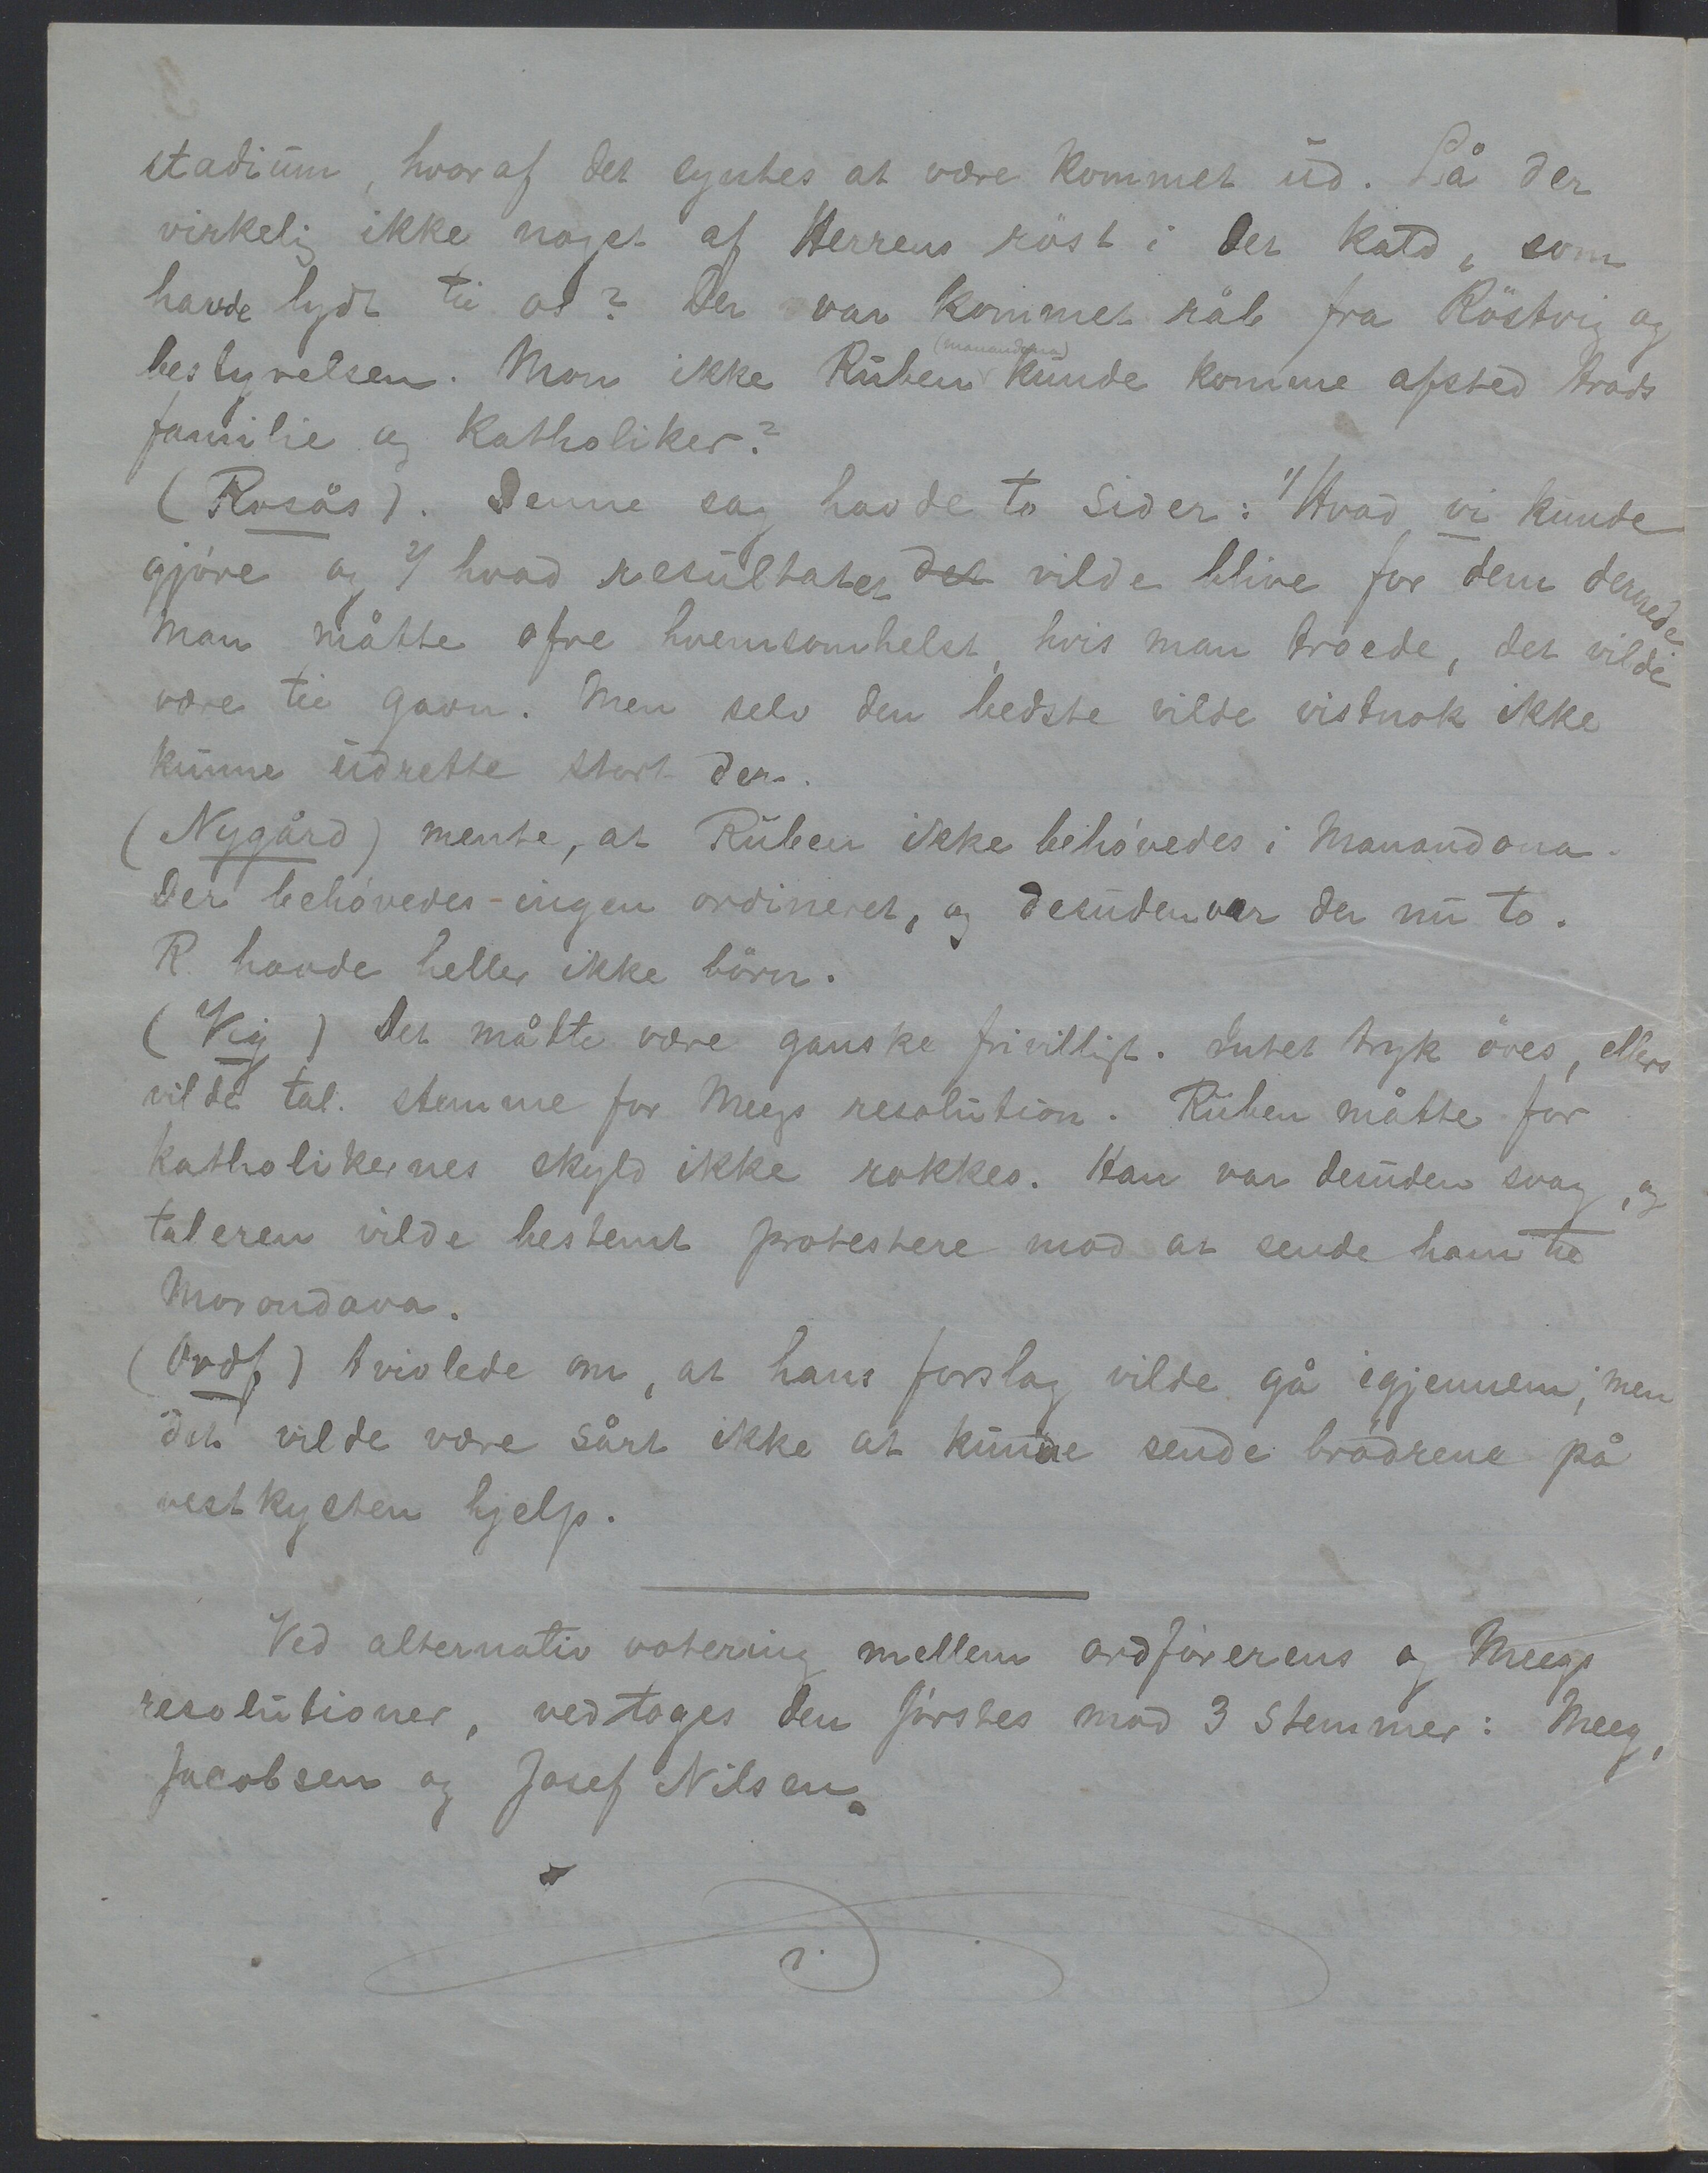 stadium, hvoraf det syntes at være kommet ud. Lå der
virkelig ikke noget af Herrens röst i det kald, som
havde lydt til os? Der var kommet råb fra Röstvig og
bestyrelsen. Mon ikke Ruben (Manandona) kunde komme afsted trods
familie og katholiker?
(Rosås). Denne sag havde to sider: 1/ Hvad vi kunde
gjöre og 2/ hvad resultatet det vilde blive for dem dernede.
Man måtte ofre hvemsomhelst, hvis man troede, det vilde
være til gavn. Men selv den bedste vilde vistnok ikke
kunne udrette stort der.
(Nygård) mente, at Ruben ikke behövedes i Manandona.
Der behövedes ingen ordineret, og desuden var der nu to.
R. havde heller ikke börn.
(Vig) Det måtte være ganske frivilligt. Intet tryk öves, ellers
vilde tal. stemme for Meegs resolution. Ruben måtte for
katholikernes skyld ikke rokkes. Han var desuden svag, og
taleren vilde bestemt protestere mod at sende ham til
Morondava.
(Ordf) tvivlede om, at hans forslag vilde gå igjennem; men
det vilde være sårt ikke at kunne sende brödrene på
vestkysten hjelp.
Ved alternativ votering mellem ordförerens og Meegs
resolutioner, vedtoges den förstes mod 3 stemmer: Meeg,
Jacobsen og Josef Nilsen.